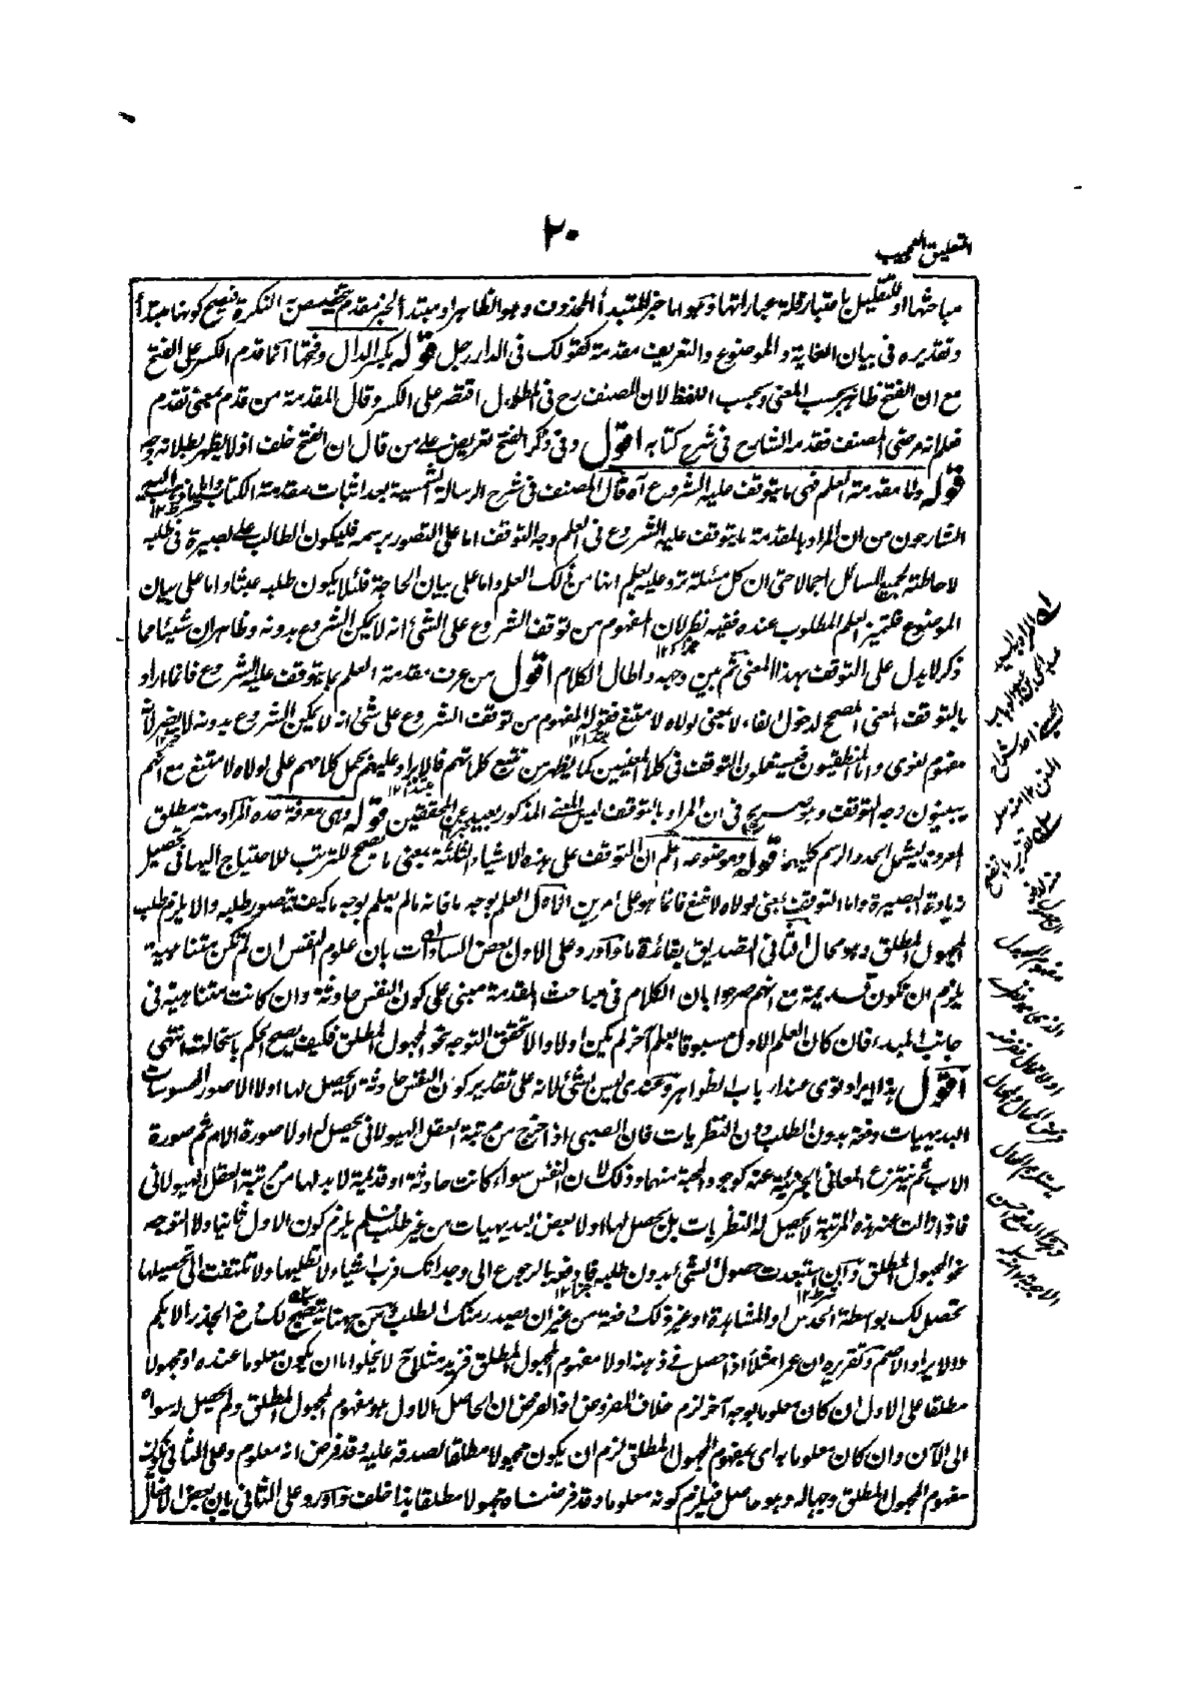 ٢٠
التعليق العجيب
مباحثها او للتقليل باعتبار قلة عباراتها وهو اما خبر للمبتدأ المحذوف وهو الظاهر او مبتدأ لخبر مقدم تخصيص به النكرة فيصح كونها مبتدأ
وتقديره فى بيان الغاية والموضوع والتعريف مقدمة كقولك فى الدار رجل قوله بكسر الدال وفتحها آنما قدم الكسر على الفتح
مع ان الفتح ظاهر بحسب المعنى وبحسب اللفظ لان المصنف رح فى المطول اقتصر على الكسر وقال المقدمة من قدم بمعنى تقدم
فعلم انه مرضى المصنف فقدمه الشارح فى شرح كتابه اقول وفى ذكر الفتح تعريض على من قال ان الفتح خلف اذ لا يظهر بطلانه وجه
قوله واما مقدمة العلم فهى ما يتوقف عليه الشروع آه قال المصنف فى شرح الرسالة الشمسية بعد اثبات مقدمة الكتاب
الشارحون من ان المراد بالمقدمة ما يتوقف عليه الشروع فى العلم وجه التوقف اما على التصور برسمه فليكون الطالب على بصيرة فى طلبه
لاحاطته بجميع المسائل اجمالا حتى ان كل مسئلة ترد عليه يعلم انها من ذلك العلم واما على بيان الحاجة فلئلا يكون طلبه عبثا واما على بيان
الموضوع فلتميز العلم المطلوب عنده ففيه نظر لان المفهوم من توقف الشروع على الشئ انه لا يمكن الشروع بدونه وظاهر ان شيئا مما
ذكر لا يدل على التوقف بهذا المعنى ثم بين وجهه واطال الكلام اقول من عرف مقدمة العلم بما يتوقف عليه الشروع فانما اراد
بالتوقف المعنى المصحح لدخول الفاء لا بمعنى لولاه لامتنع فقوله المفهوم من توقف الشروع على شئ انه لا يمكن الشروع بدونه لا يضر لانه
مفهوم لغوى واما المنطقيون فيستعملون التوقف فى كلا المعنيين كما يظهر من تتبع كلماتهم فالايراد عليهم بحمل كلامهم على لولاه لامتنع مع انهم
يبينون وجه التوقف وهو صريح فى ان المراد بالتوقف ليس المعنى المذكور بعيد عن المحققين قوله وهى معرفة حده المراد منه مطلق
المعروف يشمل الحد والرسم كليهما قوله وموضوعه اعلم ان التوقف على هذه الاشياء الثلثة بمعنى ما يصح للترتب للاحتياج اليها فى تحصيل
زيادة البصيرة واما التوقف بمعنى لولاه لامتنع فانما هو على امرين الاول العلم بوجه ما فانه ما لم يعلم بوجه ما كيف يتصور طلبه والا يلزم طلب
المجهول المطلق وهو محال الثانى التصديق بفائدة ما وآورد على الاول بعض السادات بان علوم النفس ان لم تكن متناهية
يلزم ان تكون قديمة مع انهم صرحوا بان الكلام فى مباحث المقدمة مبنى على كون النفس حادثة وان كانت متناهية فى
جانب المبدء فان كان العلم الاول مسبوقا بعلم آخر لم يكن اولا والا تحقق التوجه نحو المجهول المطلق فكيف يصح الحكم باستحالته انتهى
اقول هذا ايراد قوى عند ارباب الظواهر وعندى ليس بشئ لانه على تقدير كون النفس حادثة لا يحصل لها اولا الا صور المحسوسات
البديهيات دفعة بدون الطلب دون النظريات فان الصبى اذا خرج من مرتبة العقل الهيولانى يحصل له اولا صورة الام ثم صورة
الاب ثم ينتزع المعانى الجزئية عنه كوجود المحبة منهما وذلك لان النفس سواء كانت حادثة او قديمة لا بد لها من مرتبة العقل الهيولانى
فاذا زالت عنه هذه المرتبة لا يحصل له النظريات بل يحصل لها اولا بعض البديهيات من غير طلب فلم يلزم كون الاول ثانيا ولا التوجه
نحو المجهول المطلق وآن استبعدت حصول الشئ بدون طلبه فادفعه بالرجوع الى وجدانك فرب اشياء لا تطلبها ولا تلتفت الى تحصيلها
تحصل لك بواسطة الحدس او المشاهدة او غير ذلك دفعة من غير ان يصدر منك الطلب ومن ههنا يتضح لك دفع الجذر الابكم
والايراد الاصم وتقريره ان عمرا مثلا اذا حصل فى ذهنه اولا مفهوم المجهول المطلق فزيد مثلا ح لا يخلو اما ان يكون معلوما عنده او مجهولا
مطلقا على الاول ان كان معلوما بوجه آخر لزم خلاف المفروض اذ الفرض ان الحاصل بالاول هو مفهوم المجهول المطلق ولم يحصل له سواه
الى الآن وان كان معلوما به اى بمفهوم المجهول المطلق لزم ان يكون مجهولا مطلقا لصدقه عليه وقد فرض انه معلوم وعلى الثانى يكون
مفهوم المجهول المطلق وجها له وهو حاصل فيلزم كونه معلوما وقد فرضناه مجهولا مطلقا هذا خلف وآورد على الثانى بان بعض الافعال